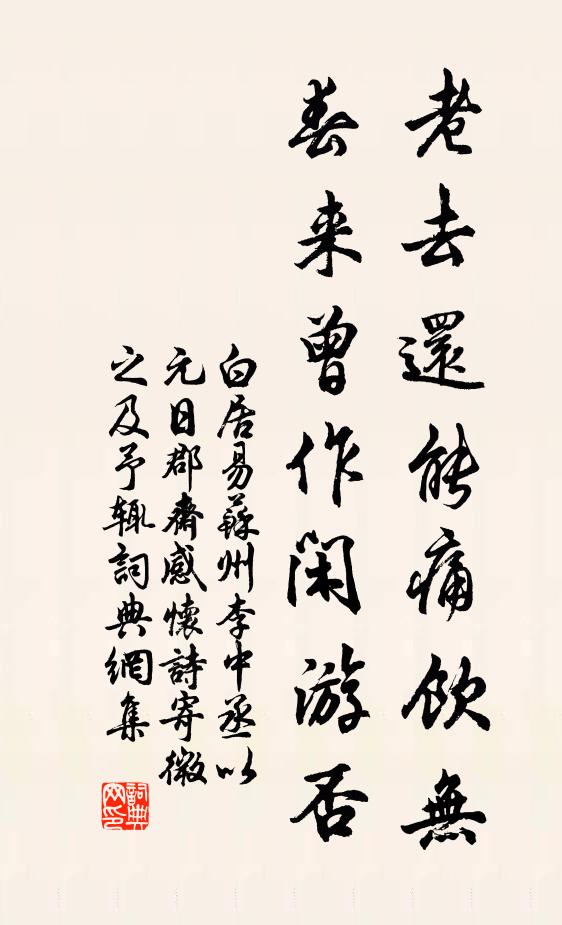 老去還能痛飲無
春来曾作閑游否
白居易蘇州李中丞以
元日郡齋感懷詩寄微
之及予輒詞典網集
詞典网印